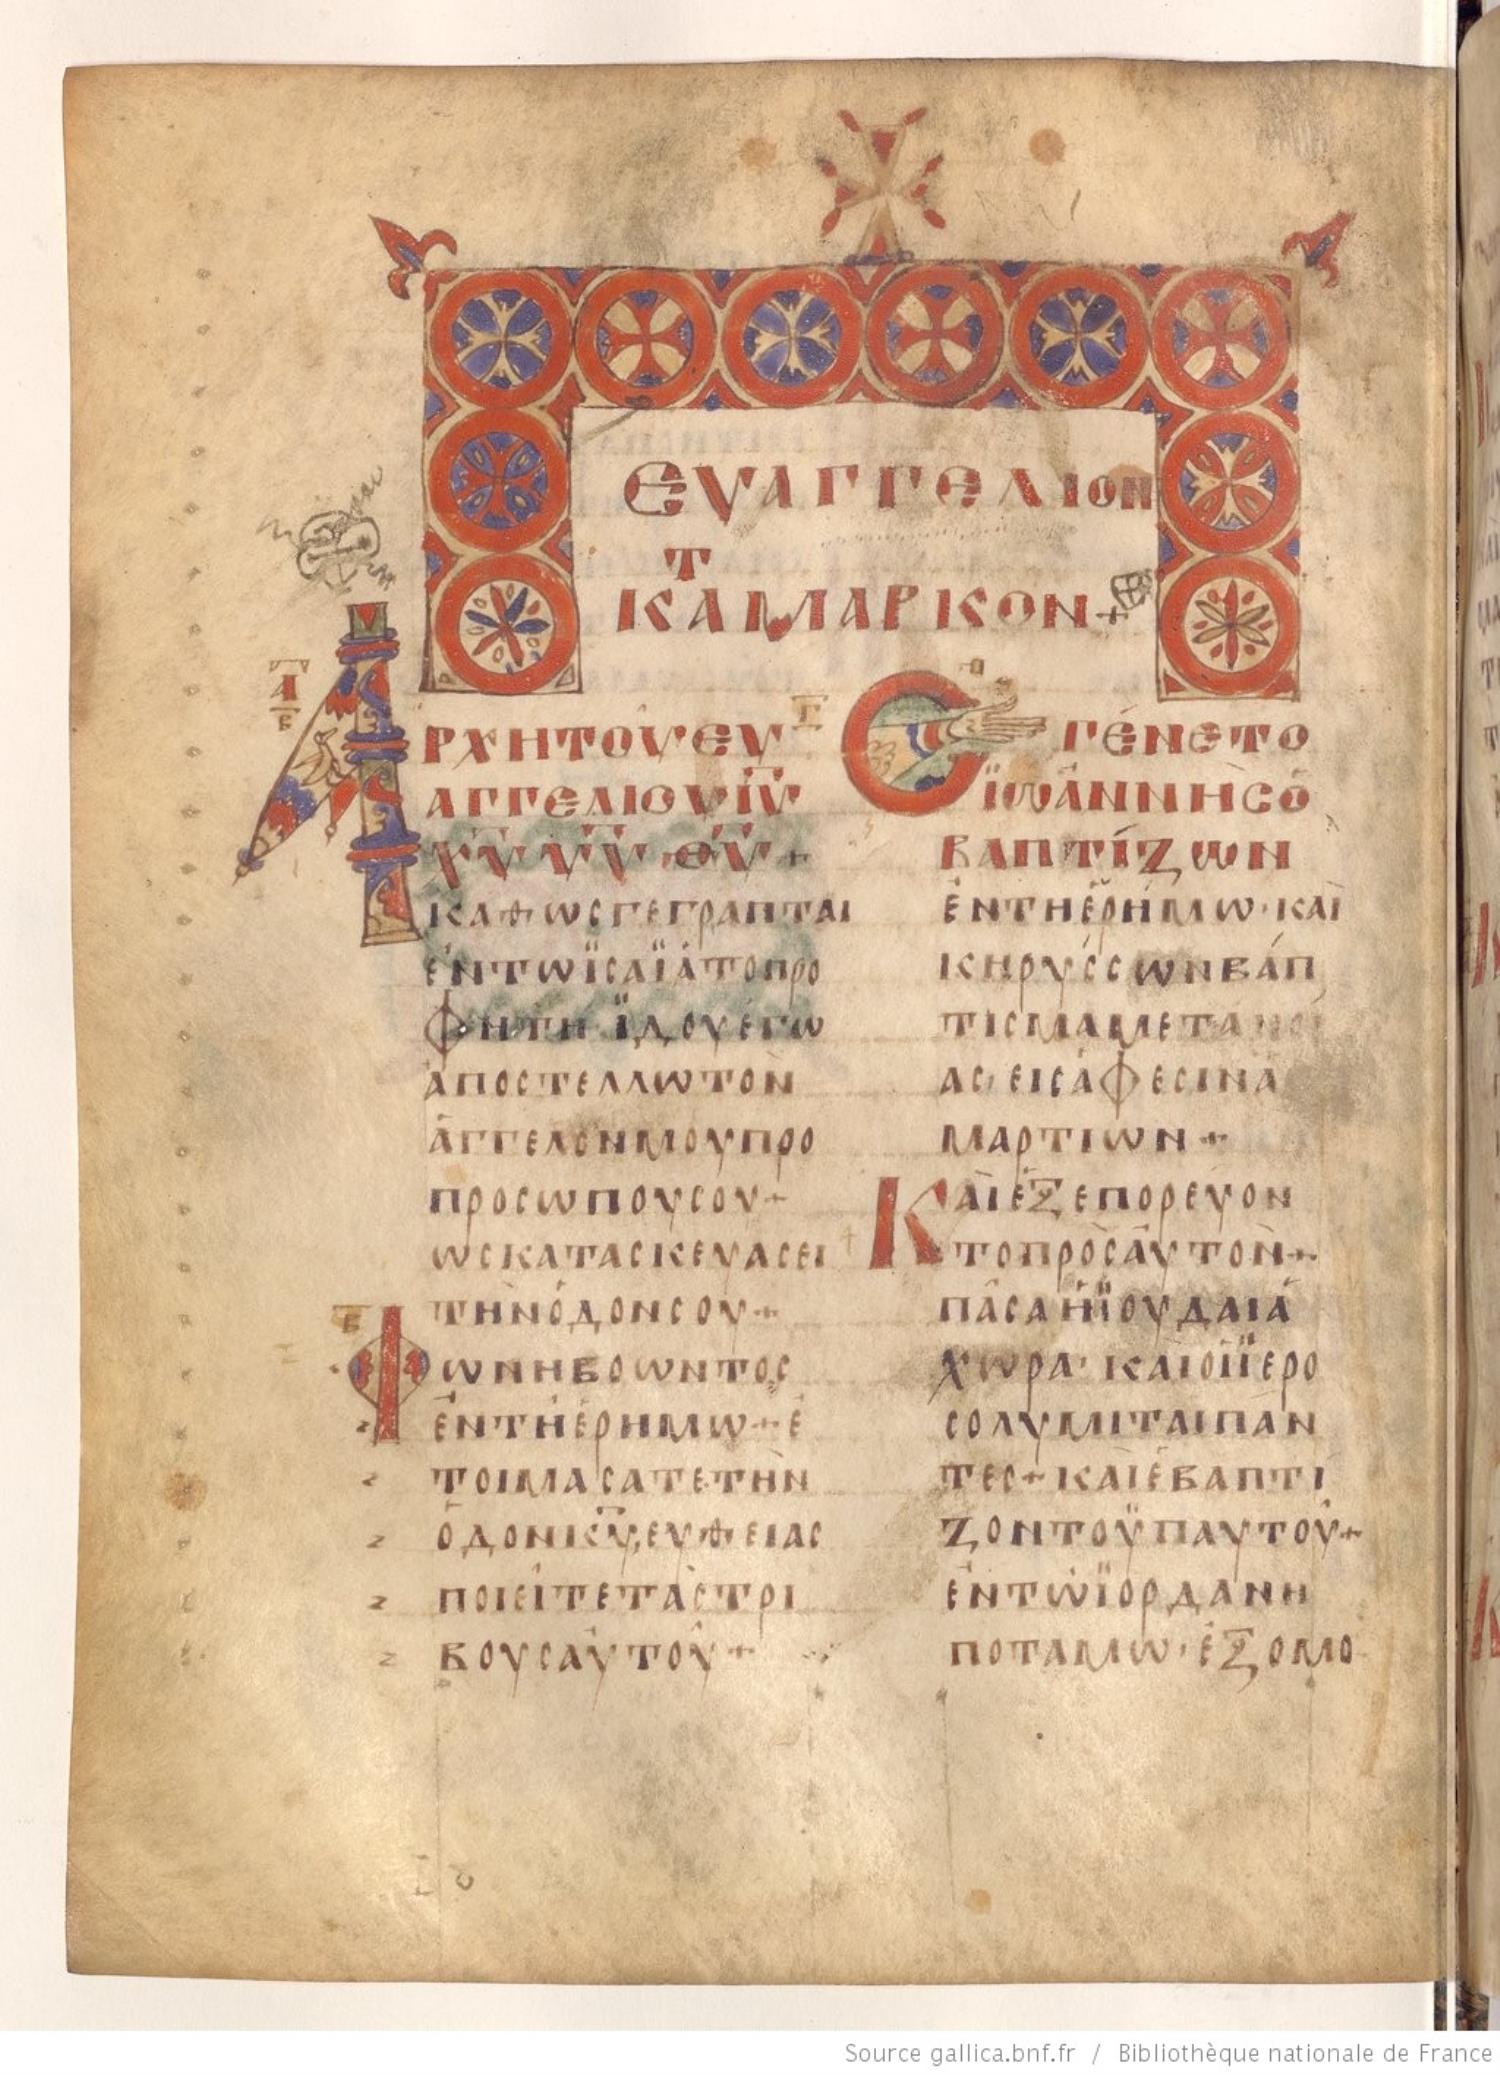 ΕΥΑΓΓΕΛΙΟΝ
ΚΑΤ ΜΑΡΚΟΝ+
ΑΡΧΗ ΤΟΥ ΕΥ
ΑΓΓΕΛΙΟΥ ΙΥ
ΧΥ ΥΥ ΘΥ+
ΚΑΘΩΣ ΓΕΓΡΑΠΤΑΙ
ΕΝ ΤΩ ΪΣΑΪΑ ΤΟ ΠΡΟ
ΦΗΤΗ ΪΔΟΥ ΕΓΩ
ΑΠΟΣΤΕΛΛΩ ΤΟΝ
ΑΓΓΕΛΟΝ ΜΟΥ ΠΡΟ
ΠΡΟΣΩΠΟΥ ΣΟΥ+
ΩΣ ΚΑΤΑΣΚΕΥΑΣΕΙ
ΤΗΝ ΟΔΟΝ ΣΟΥ+
ΦΩΝΗ ΒΟΩΝΤΟΣ
ΕΝ ΤΗ ΕΡΗΜΩ+ Ε
ΤΟΙΜΑΣΑΤΕ ΤΗΝ
ΟΔΟΝ ΚΥ, ΕΥΘΕΙΑΣ
ΠΟΙΕΙΤΕ ΤΑΣ ΤΡΙ
ΒΟΥΣ ΑΥΤΟΥ+
ΕΓΕΝΕΤΟ
ΪΩΑΝΝΗΣ Ο
ΒΑΠΤΙΖΩΝ
ΕΝ ΤΗ ΕΡΗΜΩ· ΚΑΙ
ΚΗΡΥΣΣΩΝ ΒΑΠ
ΤΙΣΜΑ ΜΕΤΑΝΟΙ
ΑΣ, ΕΙΣ ΑΦΕΣΙΝ Α
ΜΑΡΤΙΩΝ+
ΚΑΙ ΕΞΕΠΟΡΕΥΟΝ
ΤΟ ΠΡΟΣ ΑΥΤΟΝ+
ΠΑΣΑ Η ΪΟΥΔΑΙΑ
ΧΩΡΑ· ΚΑΙ ΟΙ ΪΕΡΟ
ΣΟΛΥΜΙΤΑΙ ΠΑΝ
ΤΕΣ+ ΚΑΙ ΕΒΑΠΤΙ
ΖΟΝΤΟ ΫΠ ΑΥΤΟΥ+
ΕΝ ΤΩ ΪΟΡΔΑΝΗ
ΠΟΤΑΜΩ· ΕΞΟΜΟ
Source gallica.bnf.fr / Bibliothèque nationale de France